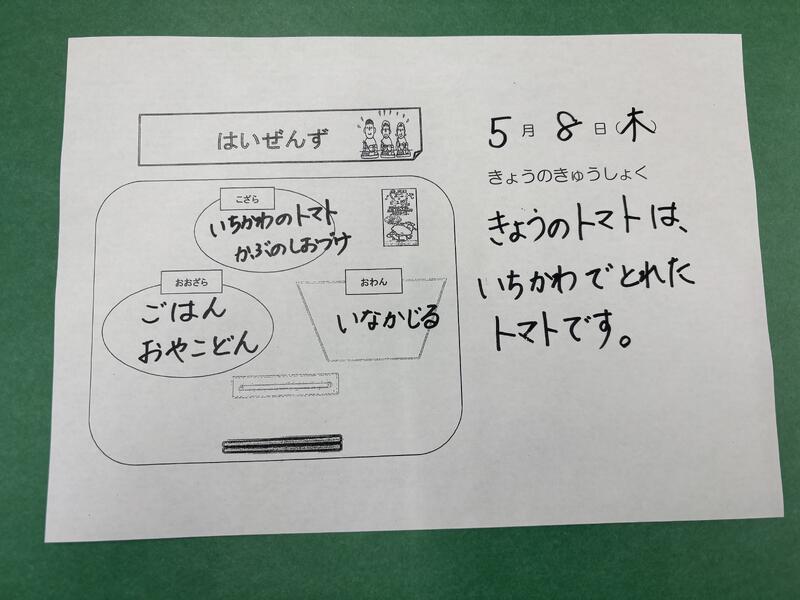 はいぜんず
こざら
いちかわのトマト
かぶのしおづけ
おおざら
ごはん
おやこどん
おわん
いなかじる
5月8日(木)
きょうのきゅうしょく
きょうのトマトは、
いちかわでとれた
トマトです。